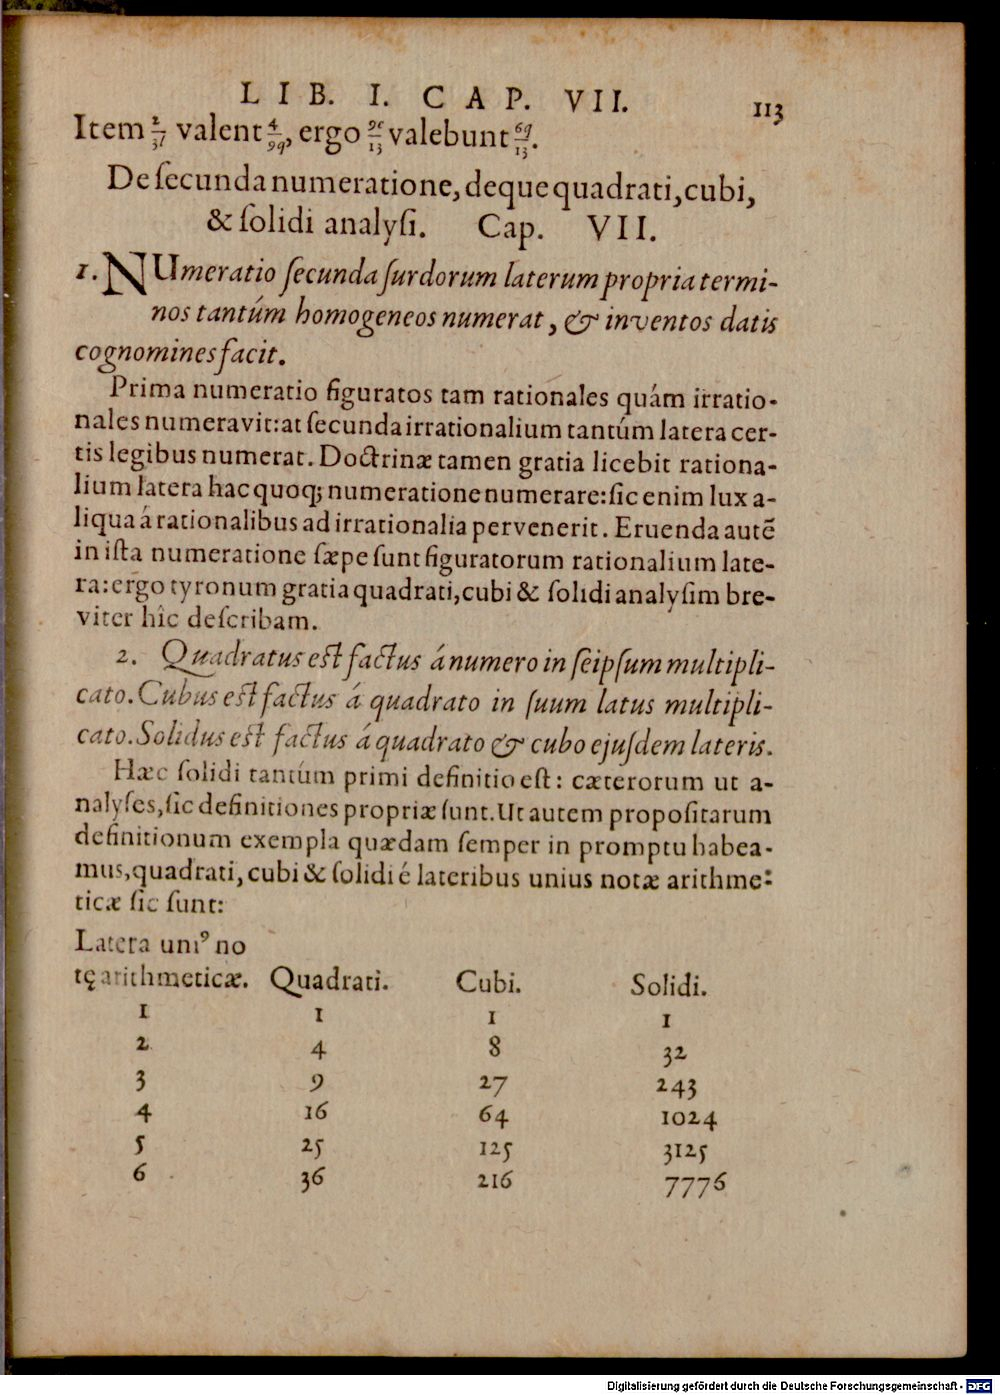 LIB. I. CAP. VII. 113
Item 2/37 valent 4/9q, ergo 9c/13 valebunt 6q/13.
De ſecunda numeratione, deque quadrati, cubi,
& ſolidi analyſi. Cap. VII.
1. NUmeratio ſecunda ſurdorum laterum propria termi-
nos tantúm homogeneos numerat, & inventos datis
cognomines facit.
Prima numeratio figuratos tam rationales quám irratio-
nales numeravit: at ſecunda irrationalium tantúm latera cer-
tis legibus numerat. Doctrinæ tamen gratia licebit rationa-
lium latera hac quoq; numeratione numerare: ſic enim lux a-
liqua á rationalibus ad irrationalia pervenerit. Eruenda autẽ
in iſta numeratione ſæpe ſunt figuratorum rationalium late-
ra: ergo tyronum gratia quadrati, cubi & ſolidi analyſim bre-
viter hîc deſcribam.
2. Quadratus eſt factus á numero in ſeipſum multipli-
cato. Cubus eſt factus á quadrato in ſuum latus multipli-
cato. Solidus eſt factus á quadrato & cubo ejuſdem lateris.
Hæc ſolidi tantúm primi definitio eſt: cæterorum ut a-
nalyſes, ſic definitiones propriæ ſunt. Ut autem propoſitarum
definitionum exempla quædam ſemper in promptu habea-
mus, quadrati, cubi & ſolidi é lateribus unius notæ arithme-
ticæ ſic ſunt:
Latera uniꝰ no
tę arithmeticæ. Quadrati. Cubi. Solidi.
1 1 1 1
2 4 8 32
3 9 27 243
4 16 64 1024
5 25 125 3125
6 36 216 7776
Digitalisierung gefördert durch die Deutsche Forschungsgemeinschaft - DFG